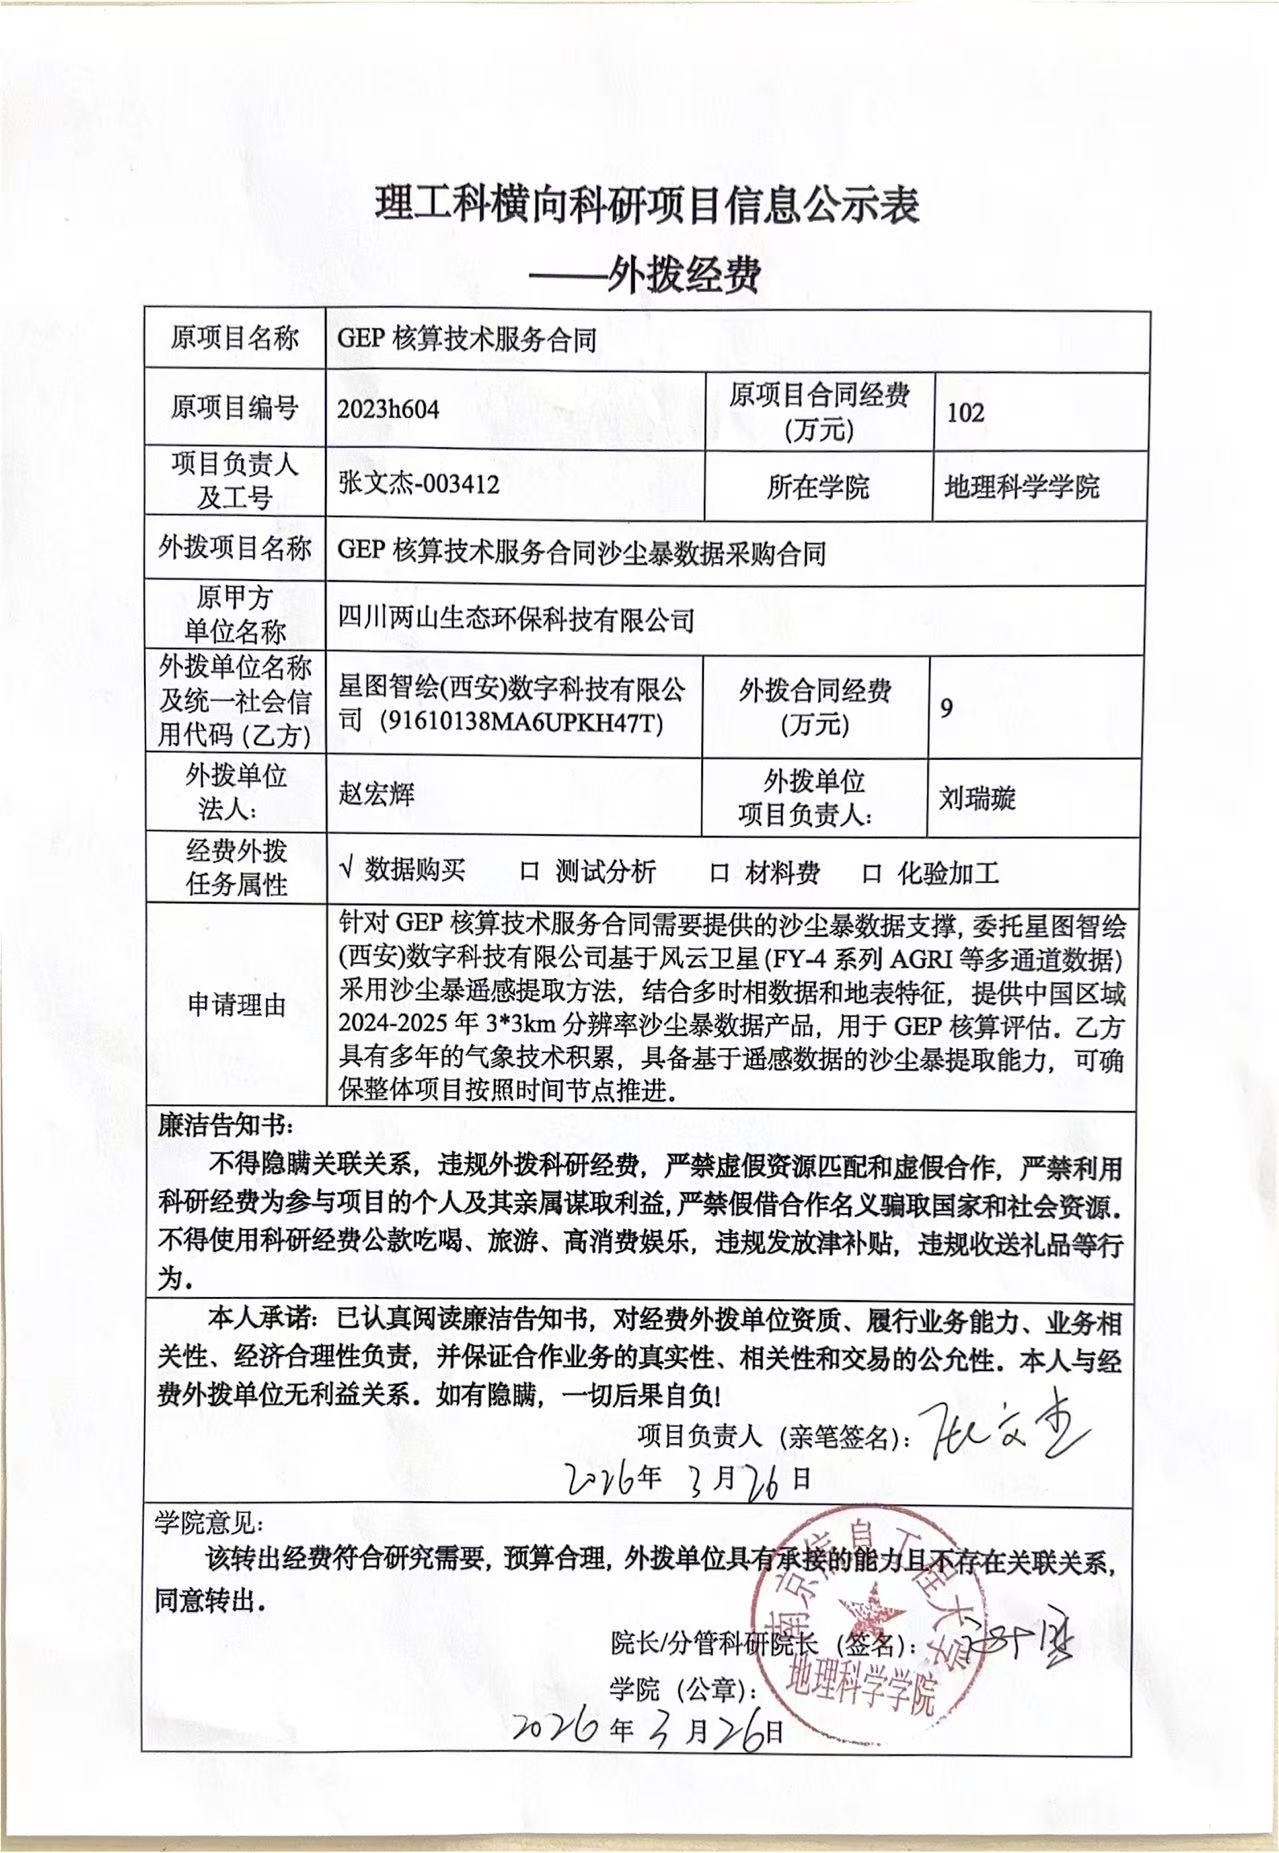 理工科横向科研项目信息公示表
——外拨经费
原项目名称 GEP 核算技术服务合同
原项目编号 2023h604 原项目合同经费(万元) 102
项目负责人及工号 张文杰-003412 所在学院 地理科学学院
外拨项目名称 GEP 核算技术服务合同沙尘暴数据采购合同
原甲方单位名称 四川两山生态环保科技有限公司
外拨单位名称及统一社会信用代码(乙方) 星图智绘(西安)数字科技有限公司（91610138MA6UPKH47T） 外拨合同经费(万元) 9
外拨单位法人： 赵宏辉 外拨单位项目负责人： 刘瑞璇
经费外拨任务属性 √ 数据购买 口 测试分析 口 材料费 口 化验加工
申请理由
针对 GEP 核算技术服务合同需要提供的沙尘暴数据支撑，委托星图智绘
(西安)数字科技有限公司基于风云卫星(FY-4 系列 AGRI 等多通道数据)
采用沙尘暴遥感提取方法，结合多时相数据和地表特征，提供中国区域
2024-2025 年 3*3km 分辨率沙尘暴数据产品，用于 GEP 核算评估。乙方
具有多年的气象技术积累，具备基于遥感数据的沙尘暴提取能力，可确
保整体项目按照时间节点推进。
廉洁告知书：
不得隐瞒关联关系，违规外拨科研经费，严禁虚假资源匹配和虚假合作，严禁利用
科研经费为参与项目的个人及其亲属谋取利益，严禁假借合作名义骗取国家和社会资源。
不得使用科研经费公款吃喝、旅游、高消费娱乐，违规发放津补贴，违规收送礼品等行
为。
本人承诺：已认真阅读廉洁告知书，对经费外拨单位资质、履行业务能力、业务相
关性、经济合理性负责，并保证合作业务的真实性、相关性和交易的公允性。本人与经
费外拨单位无利益关系。如有隐瞒，一切后果自负！
项目负责人（亲笔签名）：张文杰
2026年 3月26日
学院意见：
该转出经费符合研究需要，预算合理，外拨单位具有承接的能力且不存在关联关系，
同意转出。
院长/分管科研院长（签名）：
学院（公章）：
2026年 3月26日
南京信息工程大学
地理科学学院